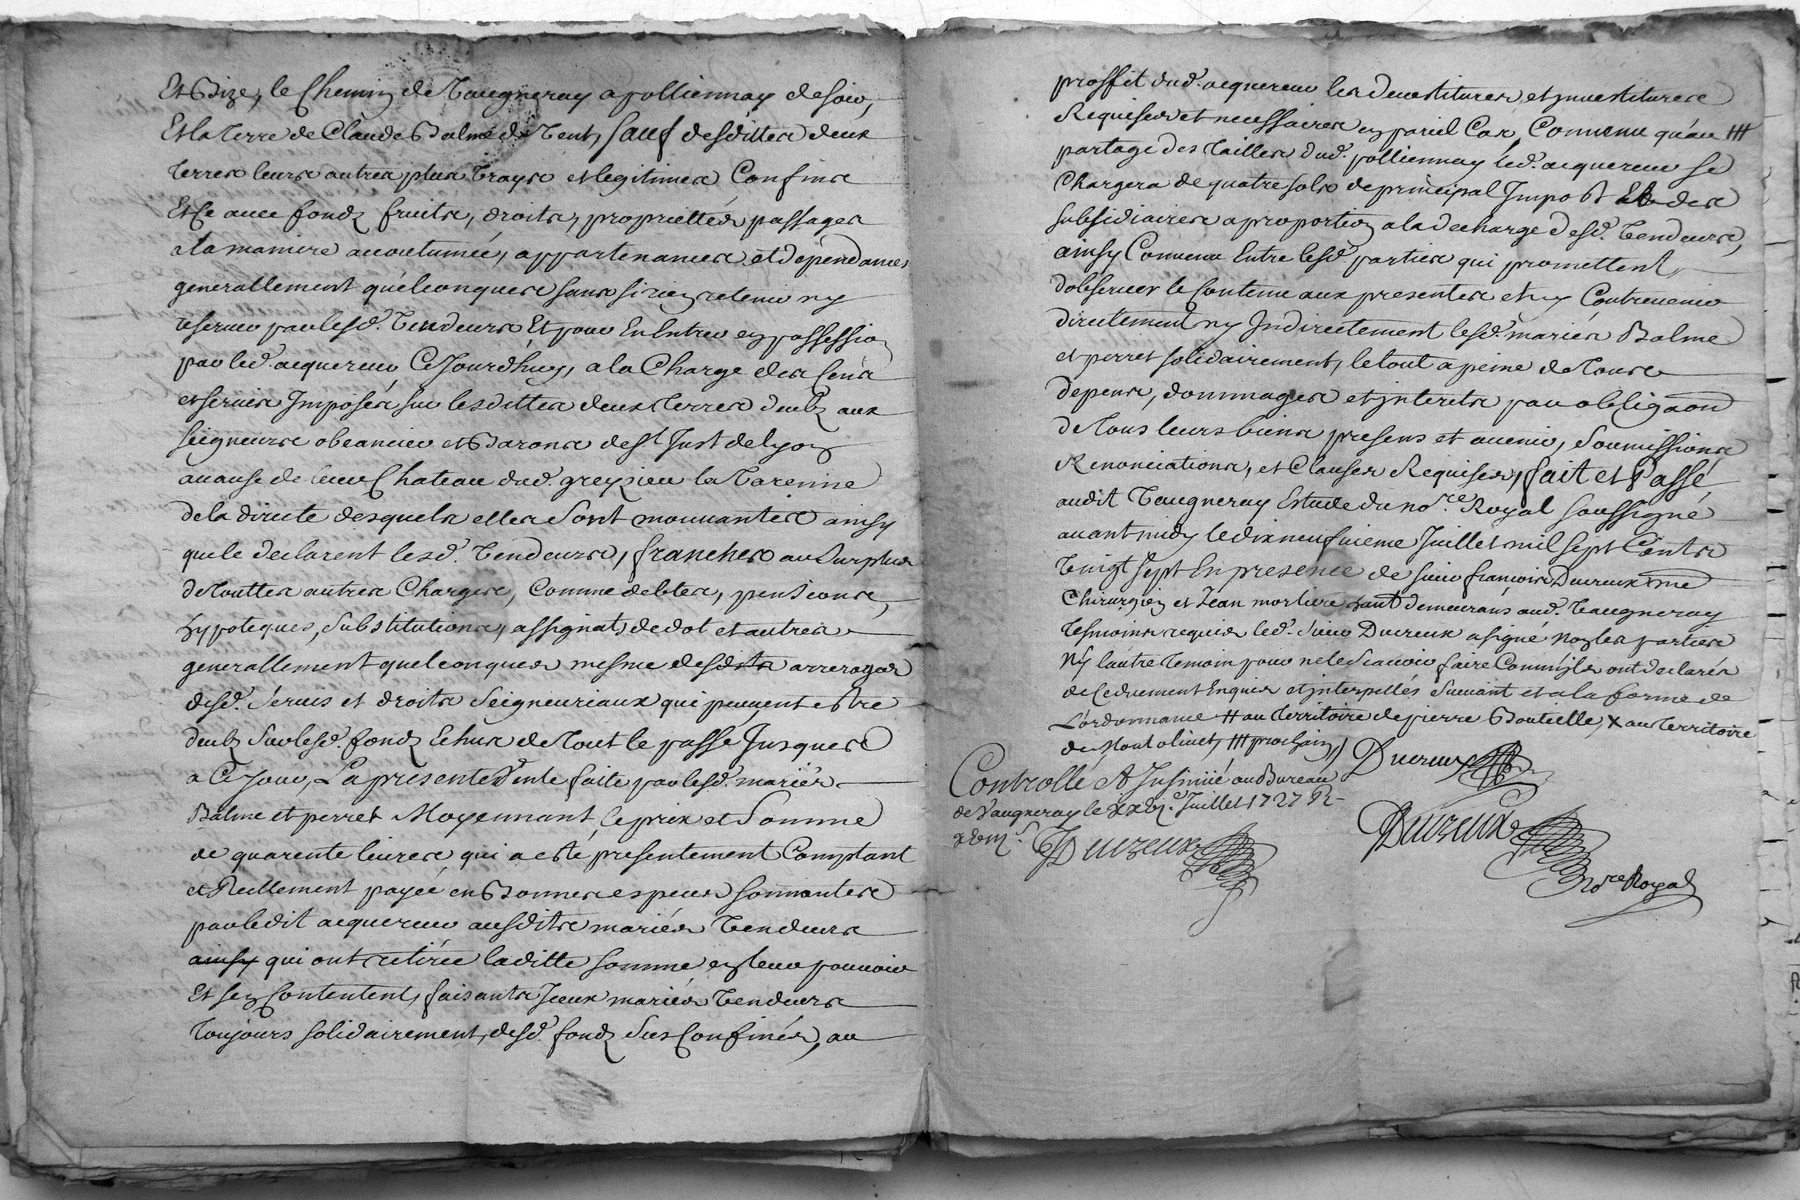 Et Bize, le Chemin de Vaugneray a pollionnay de soir,
Et la Terre de Claude Balme de Vent, Sauf desdittes deux
Terres leurs autres plus vrays et legitimes Confins
Et Ce avec fondz fruits, droits, proprietées passages
a la maniere accoutumée, appartenances et dépendances
generallement quélconques sans sy rien retenir ny
reserver par lesd. Vendeurs Et pour En Entrer en possession
par led. acquereur Cejourdhuy, a la Charge des Cens
et servis Imposés sur lesdittes deux Terres deubz aux
seigneurs obeancier et Barons de St Just de lyon
a cause de leur Chateau dud. greyzieu la Varenne
de la directe desquels elles Sont mouvantes ainsy
que le declarent lesd. Vendeurs, franches au Surplus
de Touttes autres Charges, Comme debtes, pensions,
hypoteques, Substitutions, assignats de dot et autres
generallement quelconques mesme desdits arrerages
desd. Servis et droits Seigneuriaux qui peuvent estre
deubz Sur lesd. fondz Echus de Tout le passé Jusques
a Ce Jour, La presente Vente faite par lesd. mariés
Balme et perret Moyennant le prix et Somme
de quarente livres qui a esté presentement Comptant
et Reellement payée en Bonnes especes sonnantes
par ledit acquereur ausdits mariés Vendeurs
ainsy qui ont retirée laditte somme en leur pouvoir
Et s'en Contentent, faisants Iceux mariés Vendeurs
Toujours solidairement, desd. fondz Sus Confinés, au
proffit dud. acquereur les devestitures et investitures
Requises et necessaires en pareil Cas, Convenu qu'au ##
partage des Tailles dud. pollionnay led. acquereur se
Chargera de quatre sols de principal Impost Et des
subsidiaires a proportion a la decharge desd. Vendeurs,
ainsy Convenu Entre lesd. parties qui promettent
dobserver le Contenu aux presentes et ny Contrevenir
directement ny Indirectement lesd. mariés Balme
et perret solidairement, le tout a peine de Tous
depens, dommages et interets par obligaon
de Tous leurs biens presens et avenir, Soumissions
Renonciations, et Clauses Requises, fait et Passé
audit Vaugneray Estude du no.re Royal soussigné
avant midy le dix neufvieme Juillet mil sept Cents
Vingt sept En presence de sieur françois Ducreux me
Chirurgien et Jean mortiere demeurans aud. Vaugneray
Tesmoins requis led. Sieur Ducreux a signé Non les parties
Ny lautre Temoin pour ne le Scavoir faire Comm'ils ont declarés
de Ce duement Enquis et interpellés Suivant et a la forme de
L'ordonnance # au Territoire de pierre Boutielle, X au Territoire
de Mont olivet, ## prochain,
Ducreux
Controllé Et Insinué au Bureau
de Vaugneray le Juillet 1727 R
Ducreux
Ducreux
No.re Royal